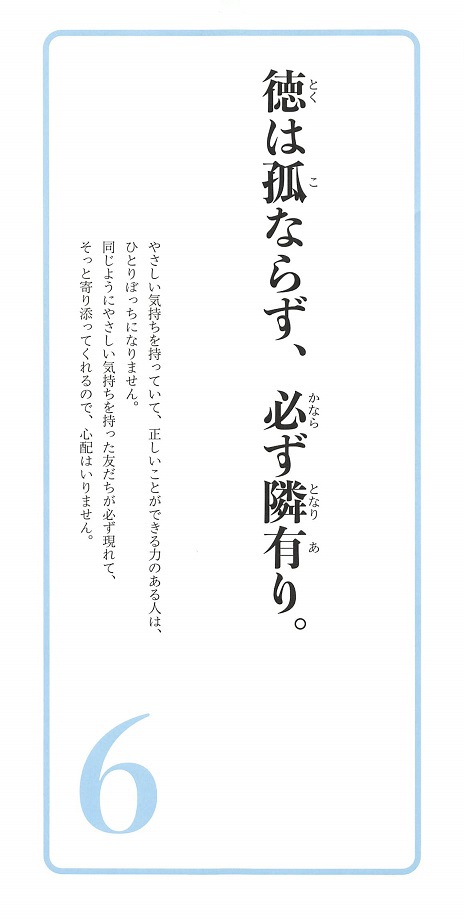 徳は孤ならず、必ず隣有り。
とく こ かなら となり あ
やさしい気持ちを持っていて、正しいことができる力のある人は、
ひとりぼっちになりません。
同じようにやさしい気持ちを持った友だちが必ず現れて、
そっと寄り添ってくれるので、心配はいりません。
6